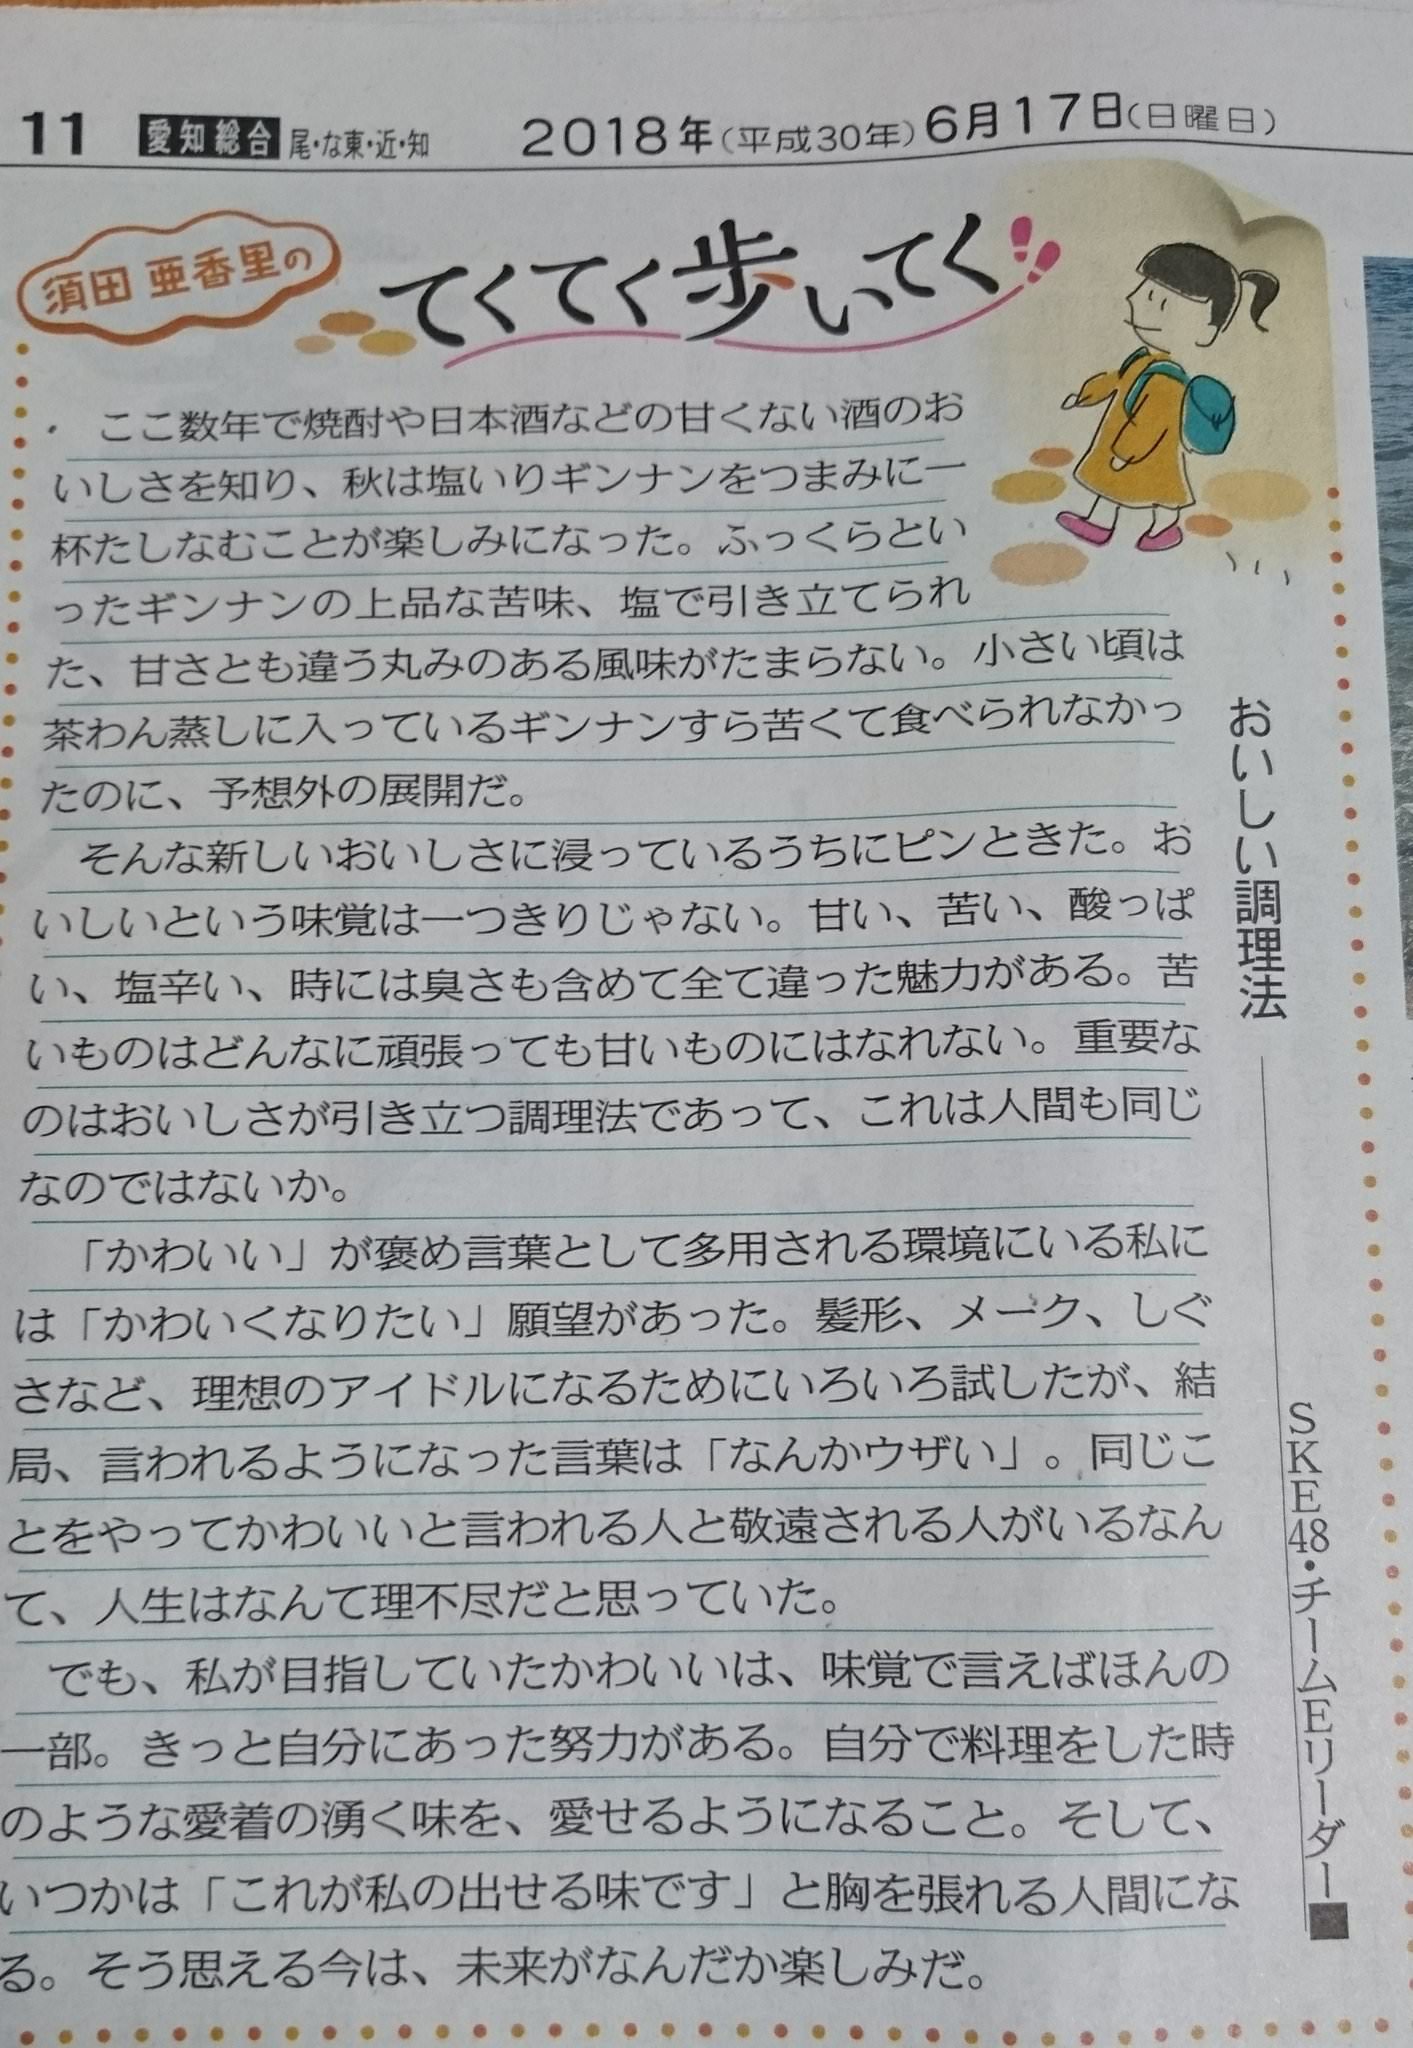 11 愛知総合 尾・な東・近・知 2018年(平成30年)6月17日(日曜日)
須田亜香里の
てくてく歩いてく
ここ数年で焼酎や日本酒などの甘くない酒のお
いしさを知り、秋は塩いりギンナンをつまみに一
杯たしなむことが楽しみになった。ふっくらとい
ったギンナンの上品な苦味、塩で引き立てられ
た、甘さとも違う丸みのある風味がたまらない。小さい頃は
茶わん蒸しに入っているギンナンすら苦くて食べられなかっ
たのに、予想外の展開だ。
そんな新しいおいしさに浸っているうちにピンときた。お
いしいという味覚は一つきりじゃない。甘い、苦い、酸っぱ
い、塩辛い、時には臭さも含めて全て違った魅力がある。苦
いものはどんなに頑張っても甘いものにはなれない。重要な
のはおいしさが引き立つ調理法であって、これは人間も同じ
なのではないか。
「かわいい」が褒め言葉として多用される環境にいる私に
は「かわいくなりたい」願望があった。髪形、メーク、しぐ
さなど、理想のアイドルになるためにいろいろ試したが、結
局、言われるようになった言葉は「なんかウザい」。同じこ
とをやってかわいいと言われる人と敬遠される人がいるなん
て、人生はなんて理不尽だと思っていた。
でも、私が目指していたかわいいは、味覚で言えばほんの
一部。きっと自分にあった努力がある。自分で料理をした時
のような愛着の湧く味を、愛せるようになること。そして、
いつかは「これが私の出せる味です」と胸を張れる人間にな
る。そう思える今は、未来がなんだか楽しみだ。
おいしい調理法
SKE48・チームEリーダー■